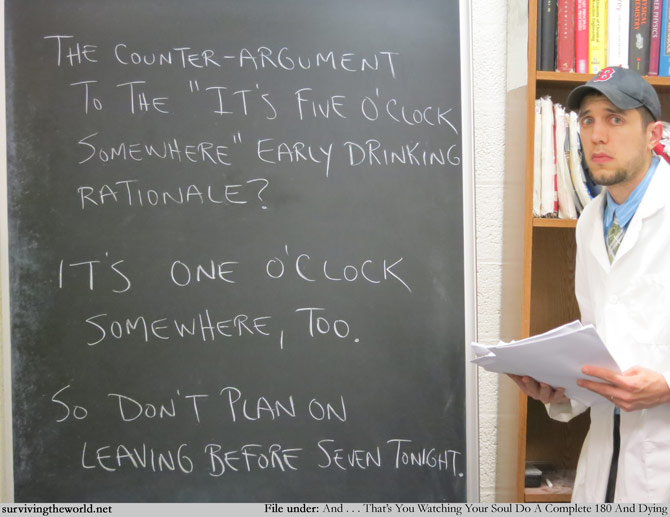 THE COUNTER-ARGUMENT
TO THE "IT'S FIVE O'CLOCK
SOMEWHERE" EARLY DRINKING
RATIONALE?
IT'S ONE O'CLOCK
SOMEWHERE, TOO.
SO DON'T PLAN ON
LEAVING BEFORE SEVEN TONIGHT.
B
survivingtheworld.net
File under: And . . . That's You Watching Your Soul Do A Complete 180 And Dying